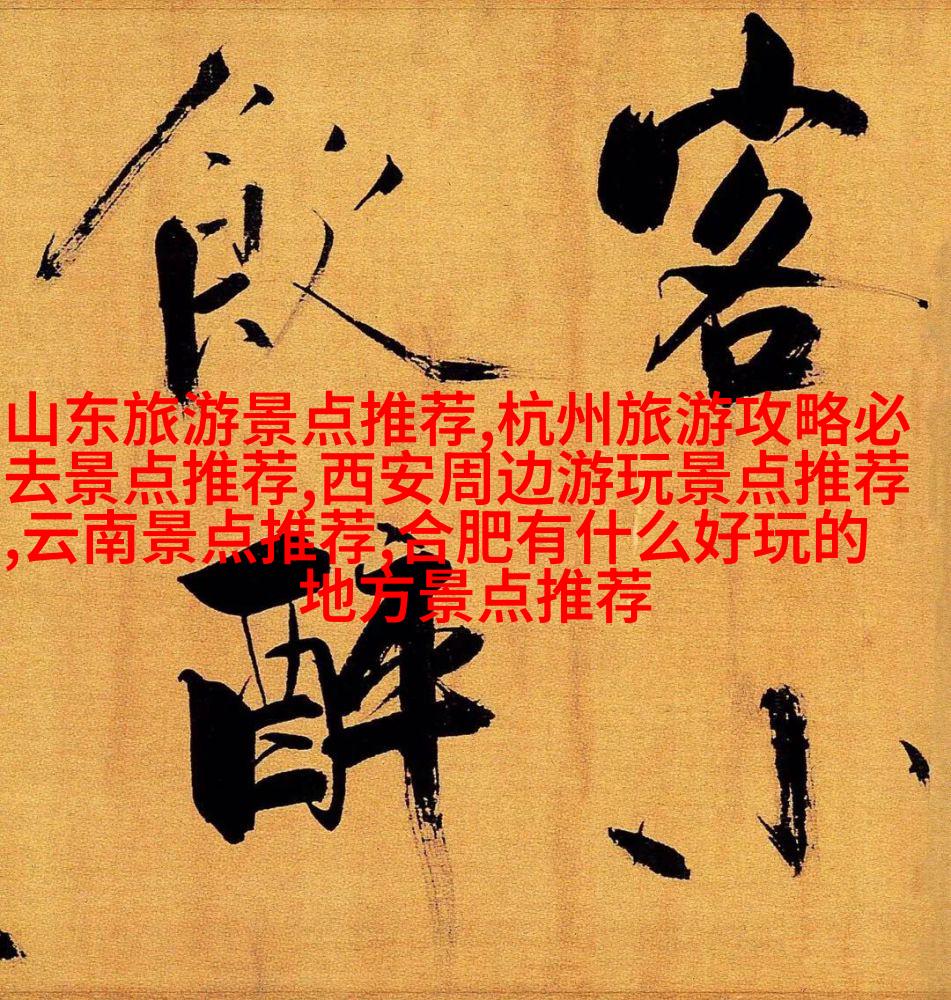 客小
飲醉
山东旅游景点推荐,杭州旅游攻略必
去景点推荐,西安周边游玩景点推荐
,云南景点推荐,合肥有什么好玩的
地方景点推荐